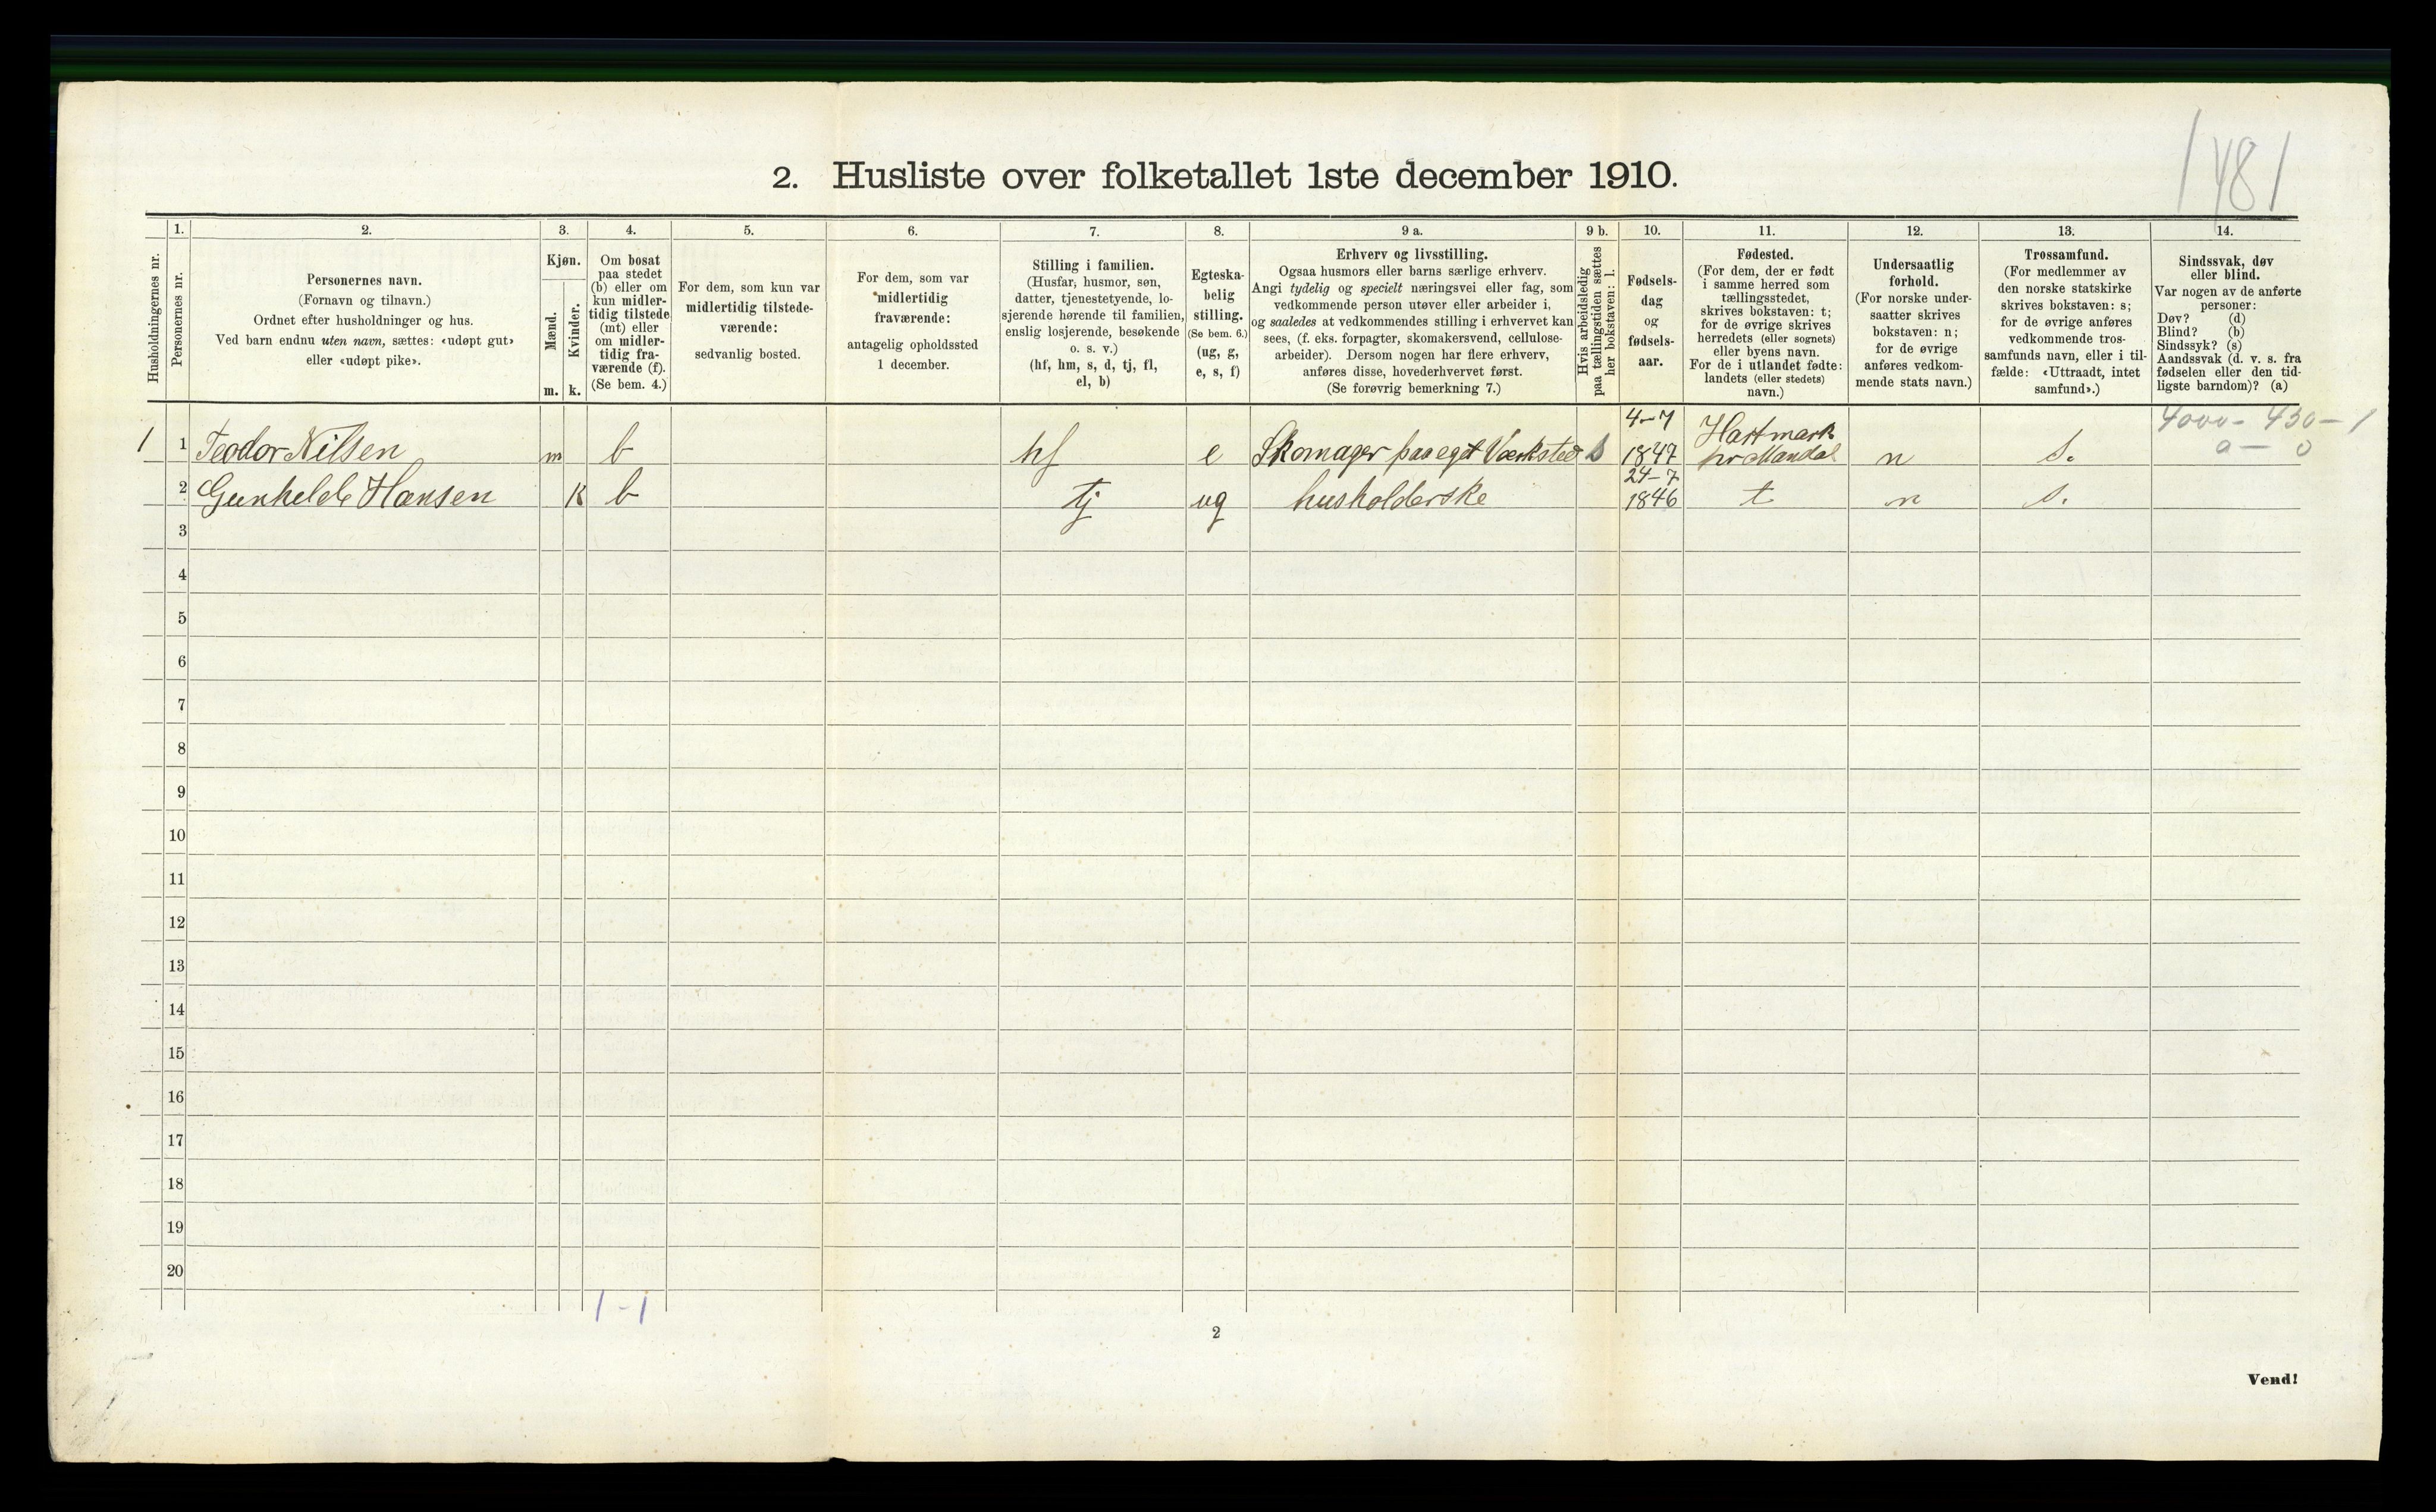 1481
2. Husliste over folketallet 1ste december 1910.
Husholdningernes nr.
1.
Personernes nr.
2.
Personernes navn.
(Fornavn og tilnavn.)
Ordnet efter husholdninger og hus.
Ved barn endnu uten navn, sættes: «udøpt gut»
eller «udøpt pike».
3.
Kjøn.
Mænd.
m.
Kvinder.
k.
4.
Om bosat
paa stedet
(b) eller om
kun midler-
tidig tilstede
(mt) eller
om midler-
tidig fra-
værende (f).
(Se bem. 4.)
5.
For dem, som kun var
midlertidig tilstede-
værende:
sedvanlig bosted.
6.
For dem, som var
midlertidig
fraværende:
antagelig opholdssted
1 december.
7.
Stilling i familien.
(Husfar, husmor, søn,
datter, tjenestetyende, lo-
sjerende hørende til familien,
enslig losjerende, besøkende
o. s. v.)
(hf, hm, s, d, tj, fl,
el, b)
8.
Egteska-
belig
stilling.
(Se bem. 6.)
(ug, g,
e, s, f)
9 a.
Erhverv og livsstilling.
Ogsaa husmors eller barns særlige erhverv.
Angi tydelig og specielt næringsvei eller fag, som
vedkommende person utøver eller arbeider i,
og saaledes at vedkommendes stilling i erhvervet kan
sees, (f. eks. forpagter, skomakersvend, cellulose-
arbeider). Dersom nogen har flere erhverv,
anføres disse, hovederhvervet først.
(Se forøvrig bemerkning 7.)
9 b.
Hvis arbeidsledig
paa tællingstiden sættes
her bokstaven: l.
10.
Fødsels-
dag
og
fødsels-
aar.
11.
Fødested.
(For dem, der er født
i samme herred som
tællingsstedet,
skrives bokstaven: t;
for de øvrige skrives
herredets (eller sognets)
eller byens navn.
For de i utlandet fødte:
landets (eller stedets)
navn.)
12.
Undersaatlig
forhold.
(For norske under-
saatter skrives
bokstaven: n;
for de øvrige
anføres vedkom-
mende stats navn.)
13.
Trossamfund.
(For medlemmer av
den norske statskirke
skrives bokstaven: s;
for de øvrige anføres
vedkommende tros-
samfunds navn, eller i til-
fælde: «Uttraadt, intet
samfund».)
14.
Sindssvak, døv
eller blind.
Var nogen av de anførte
personer:
Døv? (d)
Blind? (b)
Sindssyk? (s)
Aandssvak (d. v. s. fra
fødselen eller den tid-
ligste barndom)? (a)
4-7 Hartmark 4000 - 430 - 1
1 1 Teodor Nilsen m b hf e Skomager paa eget Værksted 1847 pr Mandal n s. 0 - 0
24-7
2 Gunhelde Hansen K b tj ug husholderske 1846 t n s.
3
4
5
6
7
8
9
10
11
12
13
14
15
16
17
18
19
20
1 - 1
2
Vend!